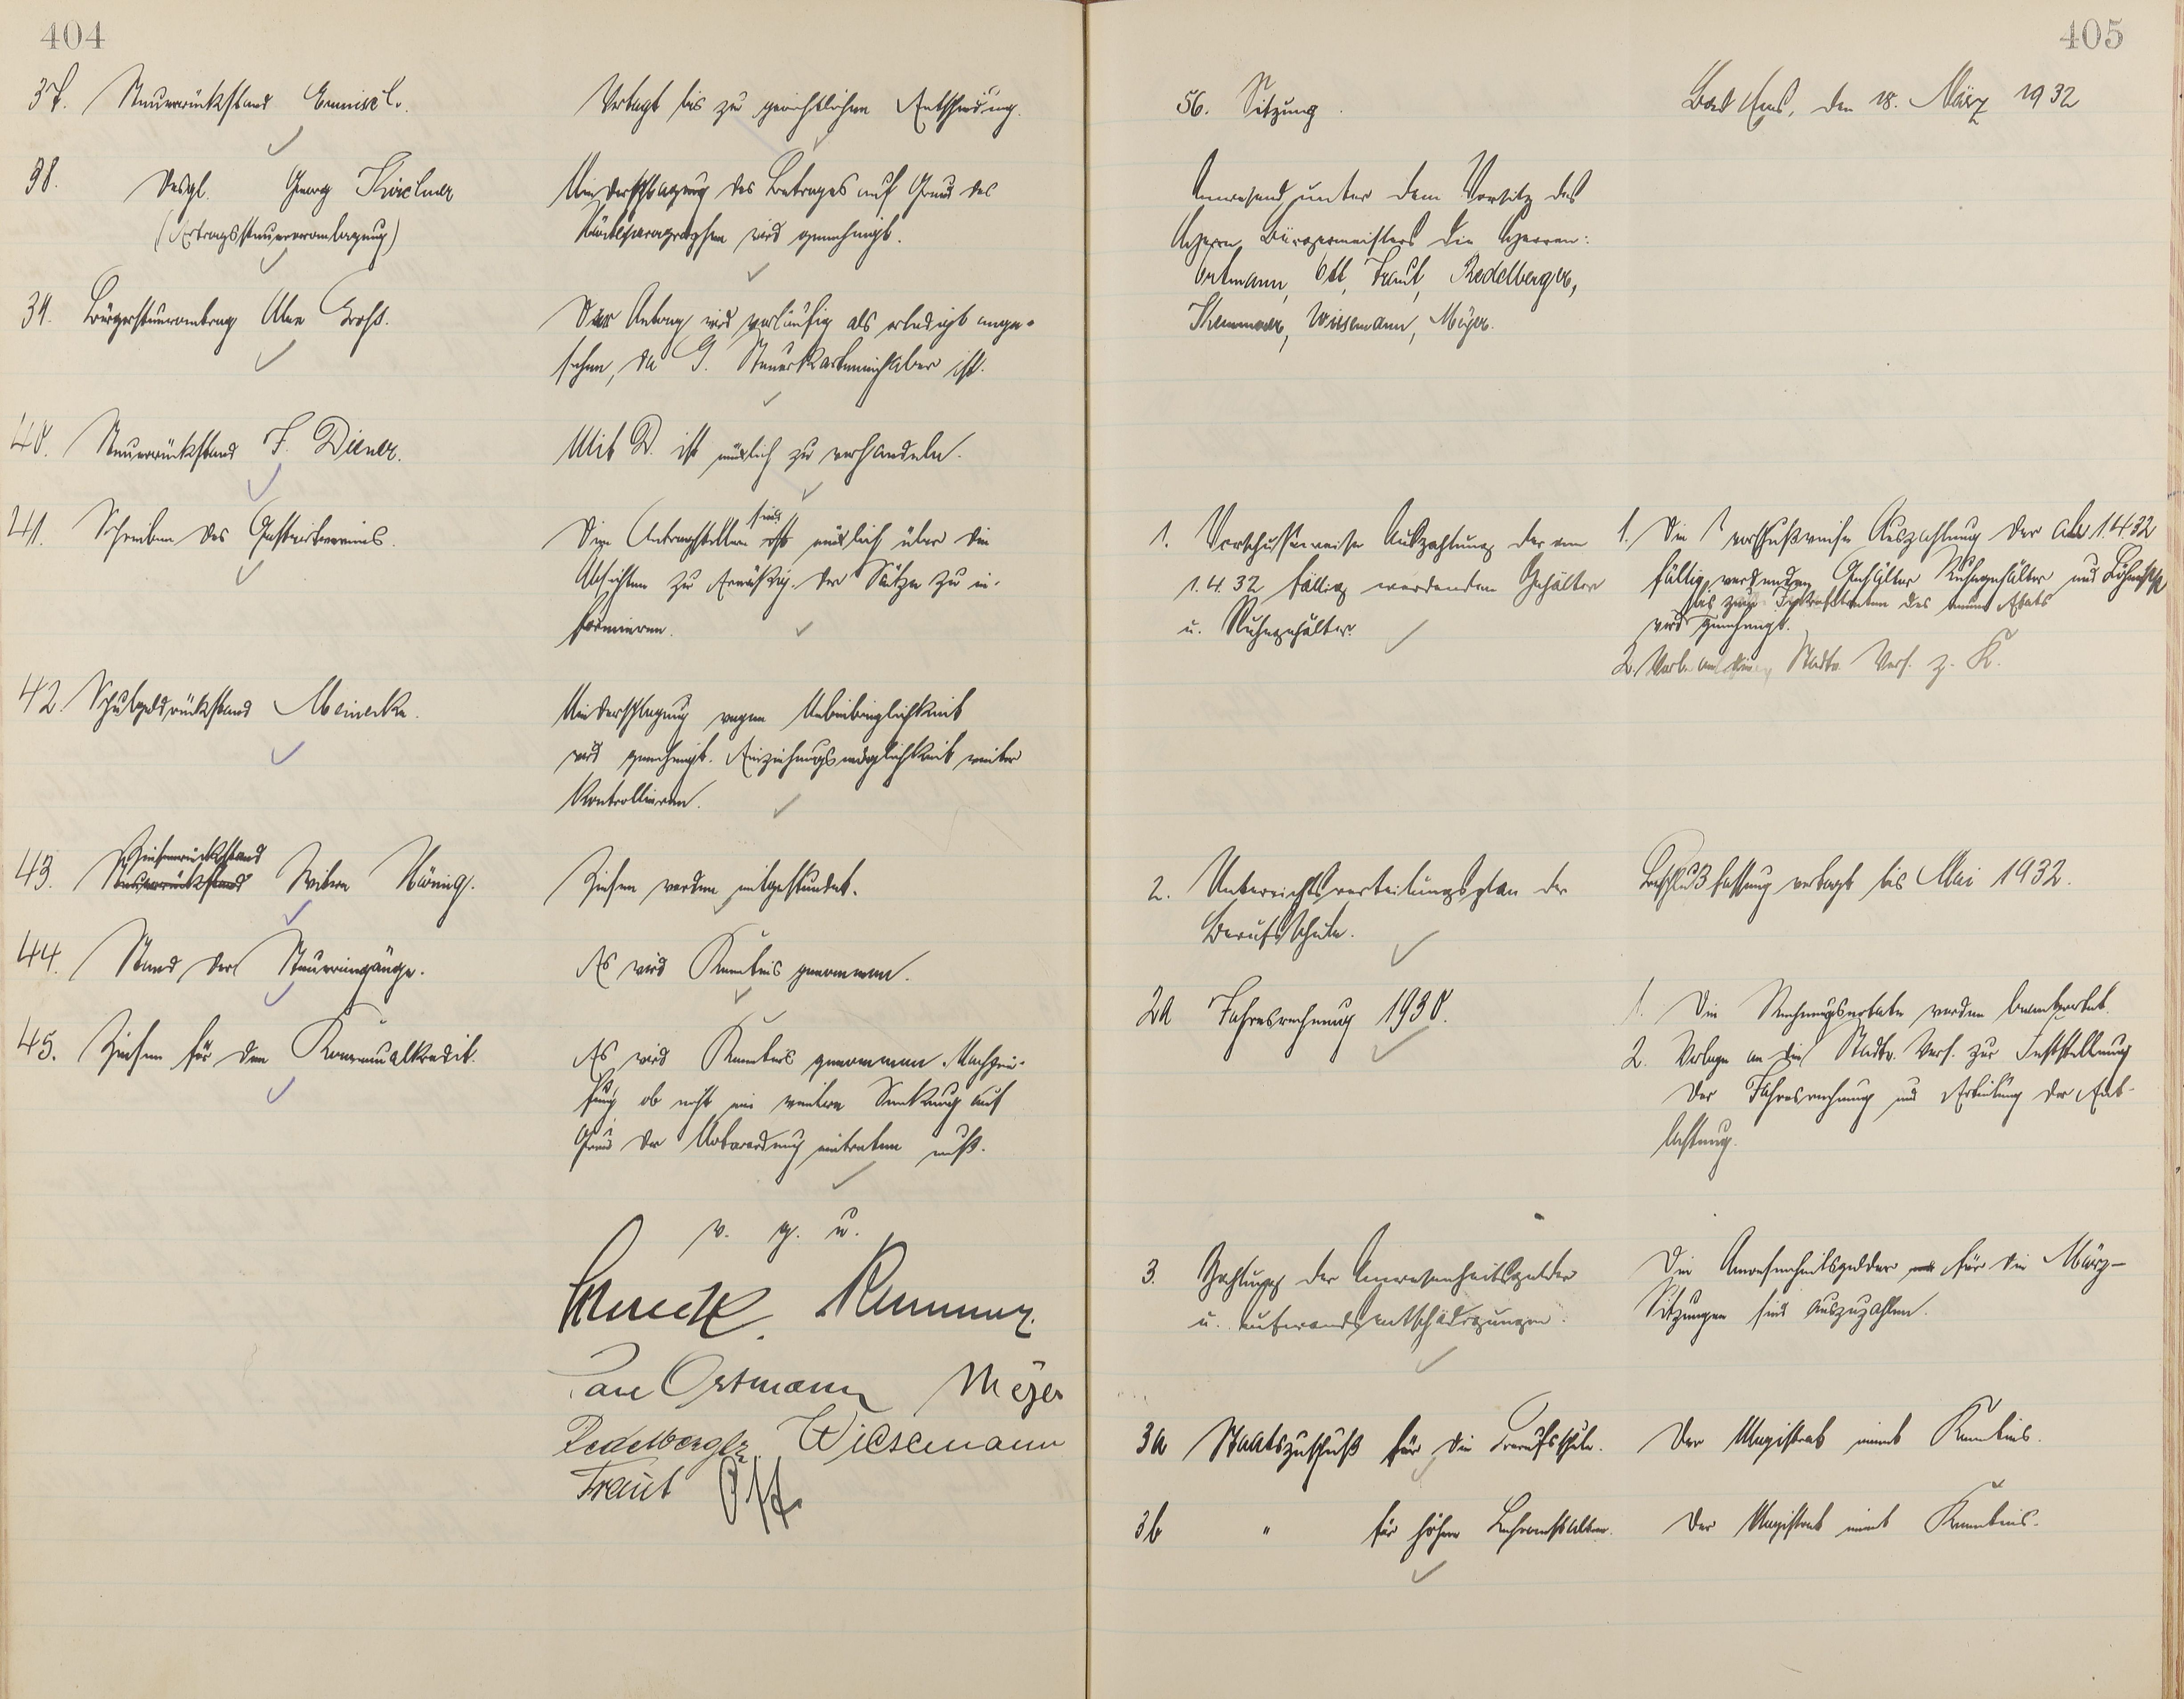 404
37. Steuerrückstand
Vertagt bis zu gerichtlichen Entscheidung.
38. Desgl. Georg Kirchner
(Ertragssteuerveranlagung)
Niederschlagung des Betrages auf Grund des
Härteparagraphen wird genehmigt.
39. Bürgersteuerantrag Groß.
Der Antrag wird vorläufig als erledigt ange-
sehen, da G. Steuerkarteninhaber ist.
40. Steuerrückstand F. Diener.
Mit D. ist mündlich zu verhandeln.
41. Schreiben des Gastwirtvereins.
Die Antragsteller sind mündlich über die
Absichten zu Ermäßig. der Sätze zu in-
formieren.
42. Schulgeldrückstand Meinecke.
Niederschlagung wegen Unbeibringlichkeit
wird genehmigt. Einziehungsmöglichkeit weiter
kontrollieren.
43. Zinsenrückstand Witwe König.
Steuerrückstand
Zinsen werden mitgestundet.
44. Stand der Steuereingänge.
Es wird Kenntnis genommen.
45. Zinsen für den Kommunalkredit.
Es wird Kenntnis genommen. Nachprü-
fung ob nicht eine weitere Senkung auf
Grund der Notverordnung eintreten muß.
v. g. u.
Kemmer.
Ortmann Meyer
Redelberger Wiesemann
Traut Ott
405
56. Sitzung.
Bad Ems, den 18. März 1932
Anwesend unter dem Vorsitz des
Herrn Bürgermeisters die Herren:
Ortmann, Ott, Traut, Redelberger,
Kemmer, Wiesemann, Meyer.
1. Vorschußweise Auszahlung der am
1.4.32 fällig werdenden Gehälter
u. Ruhegehälter.
1. Die vorschußweise Auszahlung der ab 1.4.32
fällig werdenden Gehälter Ruhegehälter und Löhne
bis zum Inkrafttreten des neuen Etats
wird genehmigt.
2. Stadtv. Vers. z. K.
2. Unterrichtsverteilungsplan der
Berufsschule.
Beschlußfassung vertagt bis Mai 1932.
2a Jahresrechnung 1930.
1. Die Rechnungsnotate werden beantwortet.
2. Vorlage an die Stadtv. Vers. zur Feststellung
der Jahresrechnung und Erteilung der Ent-
lastung.
3. Zahlung der Anwesenheitsgelder
u. Aufwandsentschädigungen.
Die Anwesenheitsgelder für die März-
Sitzungen sind auszuzahlen.
3a Staatszuschuß für die Berufsschule.
Der Magistrat nimmt Kenntnis.
3b " für höhere Lehranstalten.
Der Magistrat nimmt Kenntnis.